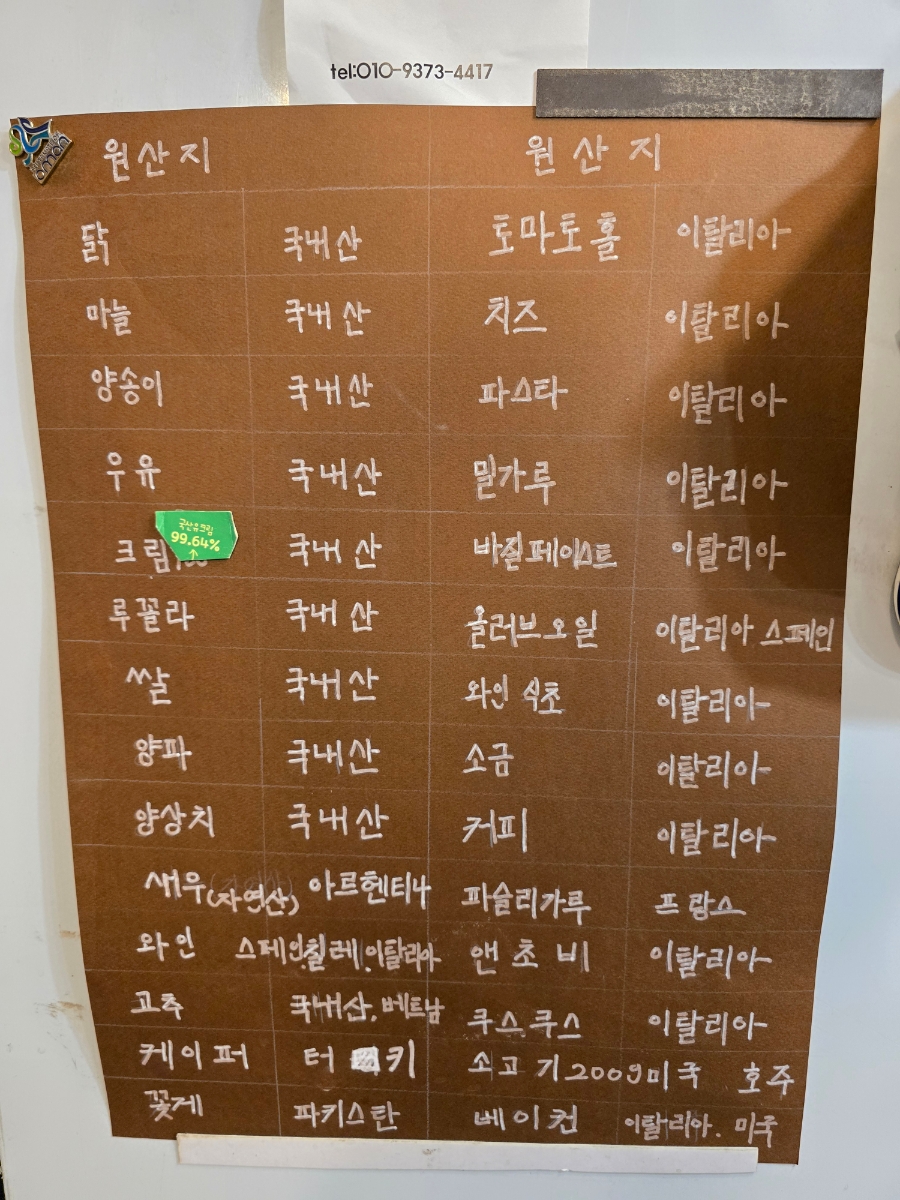 tel:010-9373-4417
원산지 원산지
닭 국내산 토마토홀 이탈리아
마늘 국내산 치즈 이탈리아
양송이 국내산 파스타 이탈리아
우유 국내산 밀가루 이탈리아
국산유크림
99.64%
↑
크림 국내산 바질페이스트 이탈리아
루꼴라 국내산 올러브오일 이탈리아 스페인
쌀 국내산 와인식초 이탈리아
양파 국내산 소금 이탈리아
양상치 국내산 커피 이탈리아
새우(자연산) 아르헨티나 파슬리가루 프랑스
와인 스페인.칠레.이탈리아 앤초비 이탈리아
고추 국내산, 베트남 쿠스쿠스 이탈리아
케이퍼 터키 소고기200g미국 호주
꽃게 파키스탄 베이컨 이탈리아. 미국